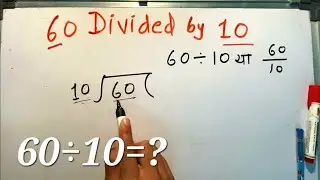 60 Divided by 10
60÷10 या 60/10
10)60(
60÷10=?